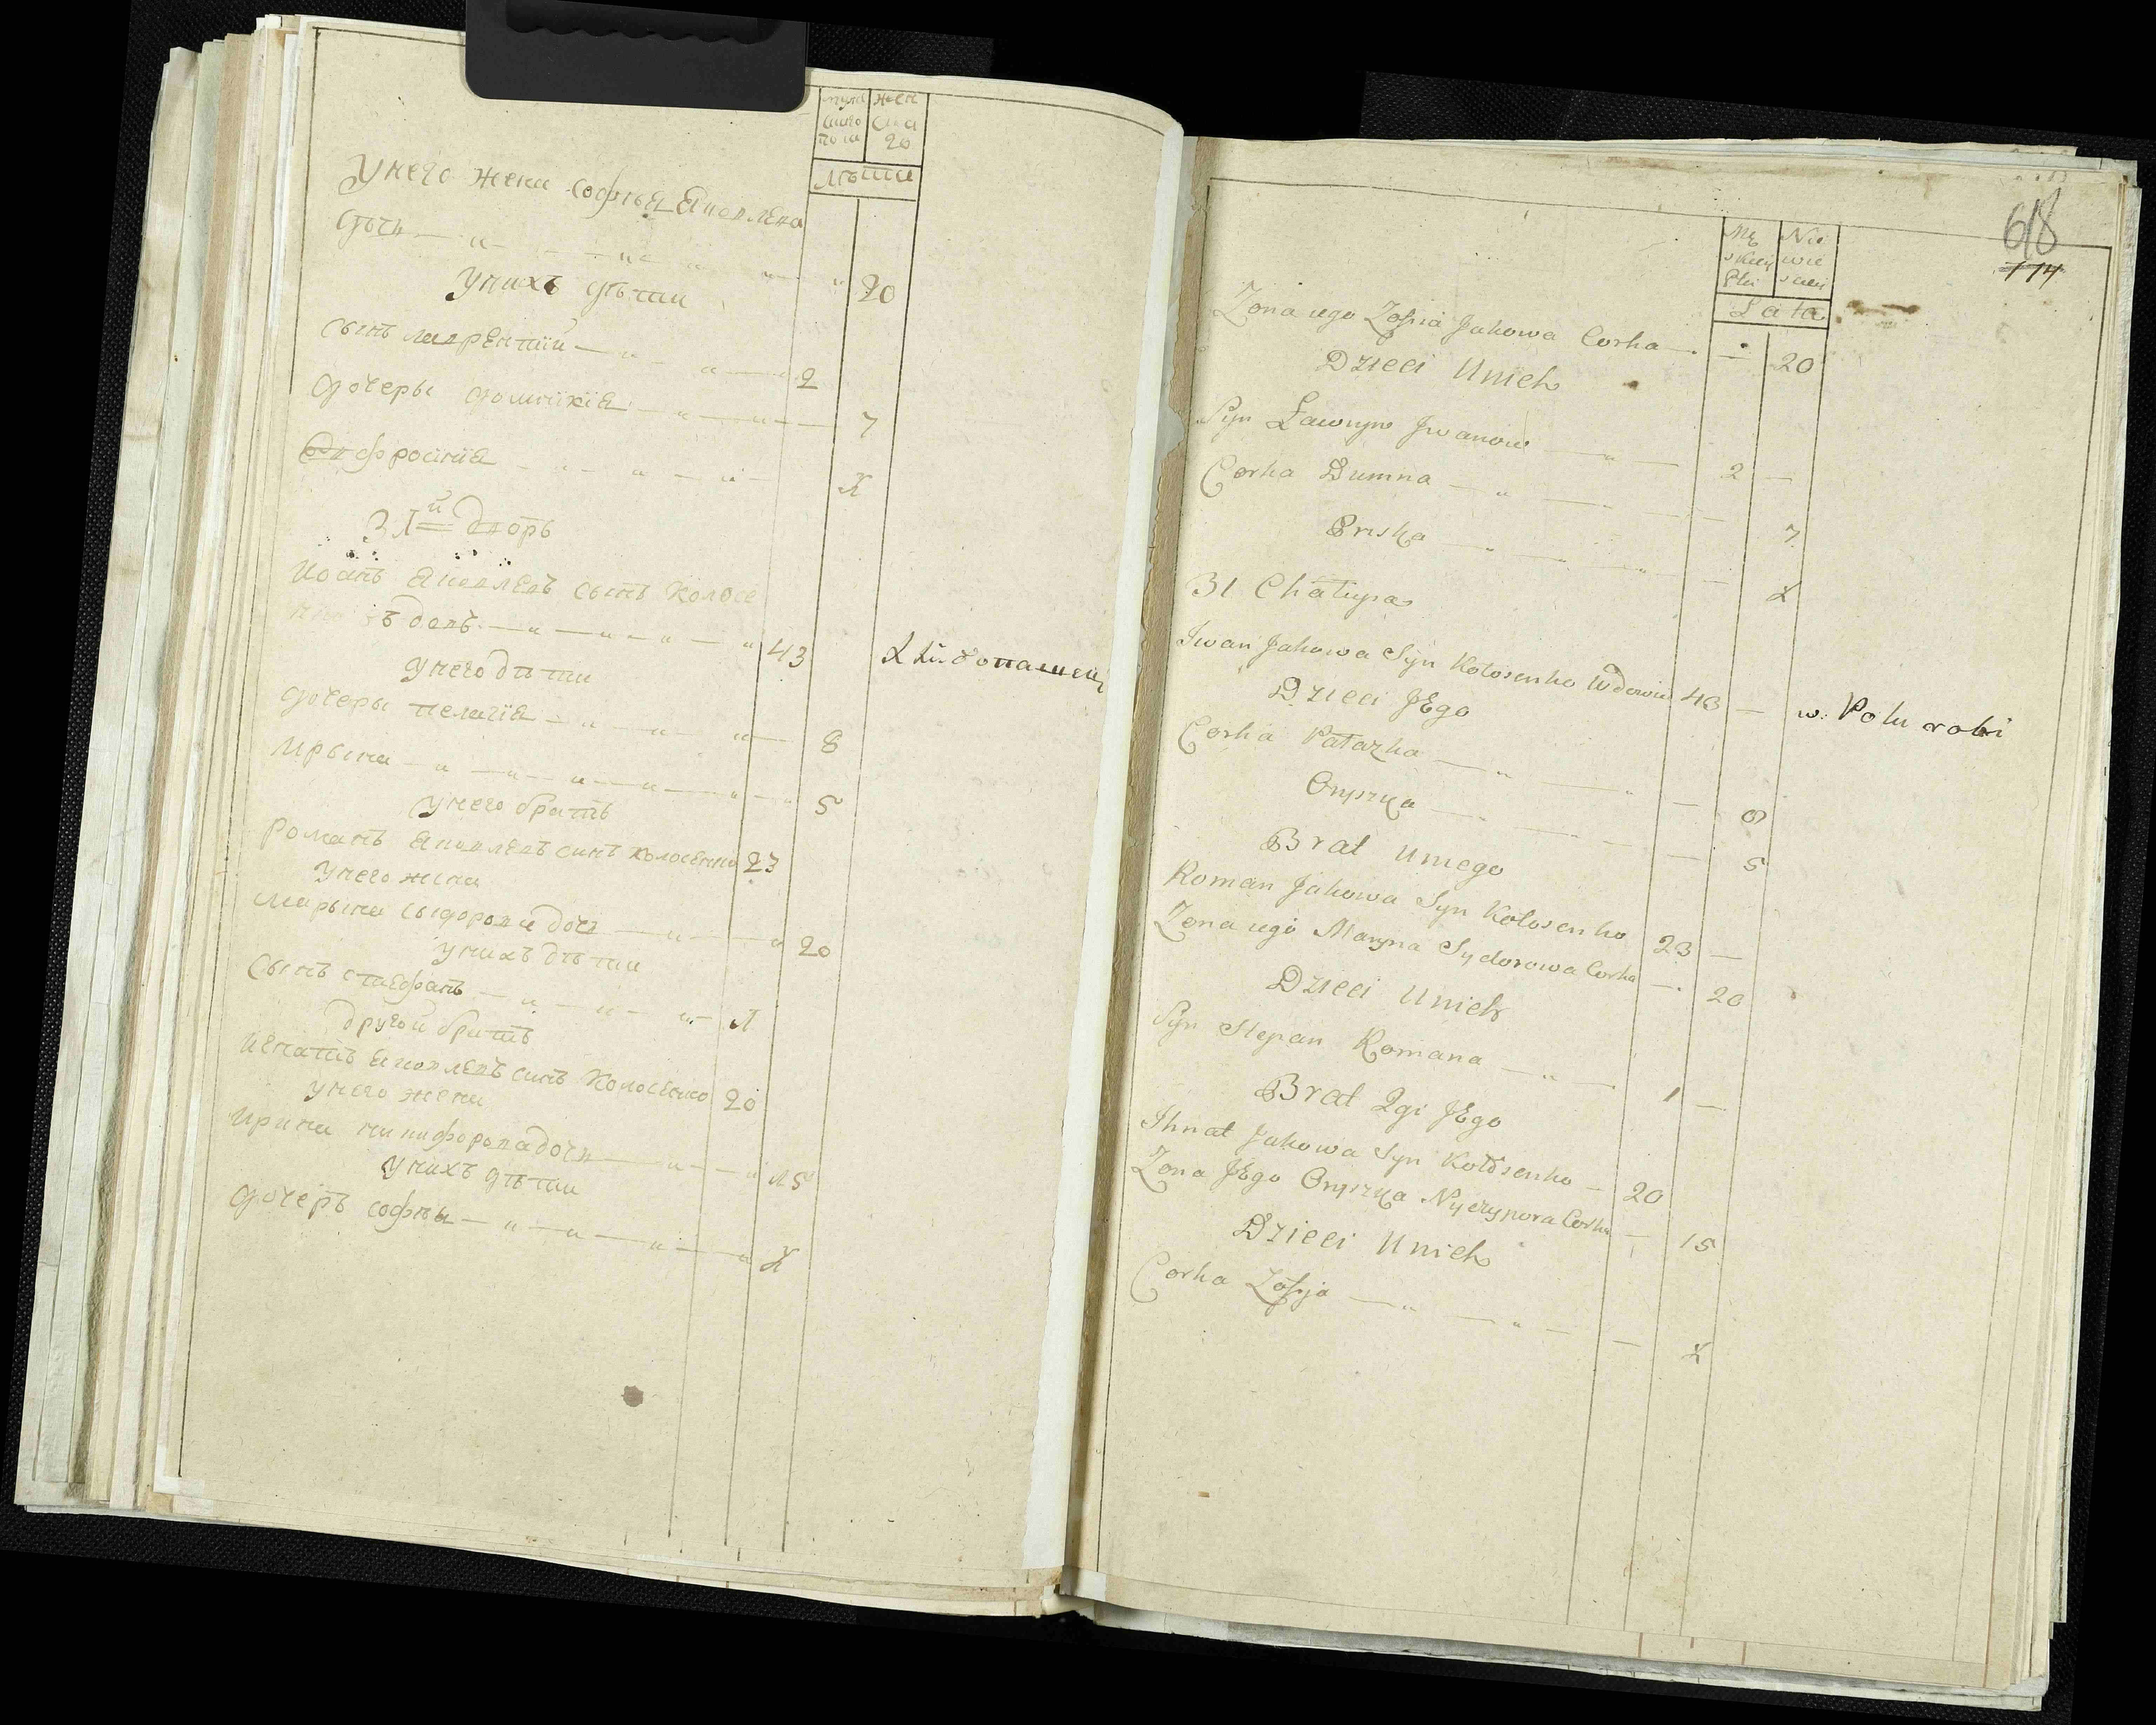 муж жен
ска
пола го
лѣта
У него жена софья Яковлева
дочь 20
У нихъ дѣти
сынъ лаврентий 2
дочеры домникия 7
Ефросиния
31й Дворъ
Иоанъ Яковлевъ сынъ Колосе
вдовъ 43
У него дѣти
дочеры пелагия 8
Ирына 5
У него братъ
Романъ Яковлевъ синъ Колосенко 23
У него жена
Марына сыдорова доч 20
У нихъ дѣти
Сынъ стефанъ 1
другой братъ
Игнатъ Яковлевъ синъ Колосенко 20
У него жена
Ирина никифорова дочь 15
У нихъ дѣти
дочеръ софья
618
174
Mę Nie
skiey wie
Płci sciey
Lata
Zona iego Zofia Jakowa Corka — 20
Dzieci Unich
Syn Ławryn Jwanow 2 —
Corka Dumna 7
Pruska — ½
31 Chałupa
Iwan Jakowa Syn Kołosenko Wdowiec 43 — w Polu robi
Dzieci JEgo
Corka Pałazka — 8
Oryszka — 5
Brat Uniego
Roman Jakowa Syn Kołosenko 23 —
Zona iego Maryna Sydorowa Corka — 20
Dzieci Unich
Syn Stepan Romana 1 —
Brat 2gi JEgo
Ihnat Jakowa Syn Kołosenko — 20
Zona JEgo Oryszka Nyczypora Corka — 15
Dzieci Unich
Corka Zofja — ½